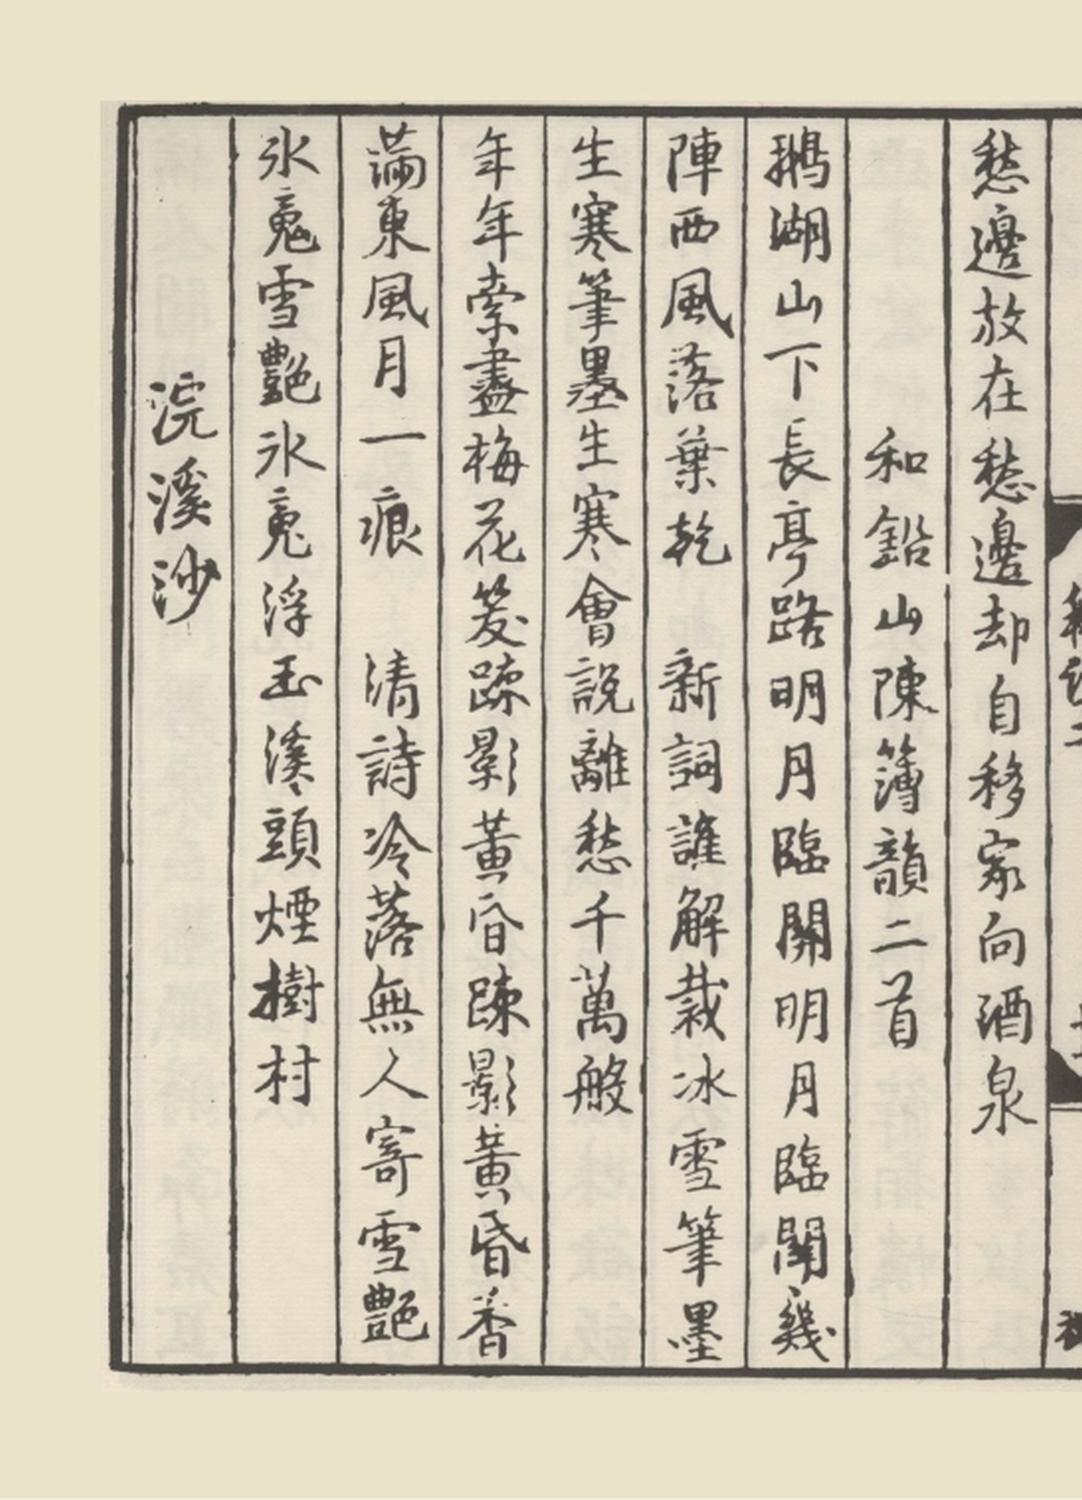 愁邊放在愁邊却自移家向酒泉
和鉛山陳簿韻二首
鵝湖山下長亭路明月臨關明月臨關幾
陣西風落葉乾　新詞誰解裁冰雪筆墨
生寒筆墨生寒會說離愁千萬般
年年索盡梅花笑疎影黃昏疎影黃昏香
滿東風月一痕　清詩冷落無人寄雪艷
氷䰟雪艷氷䰟浮玉溪頭煙樹村
浣溪沙